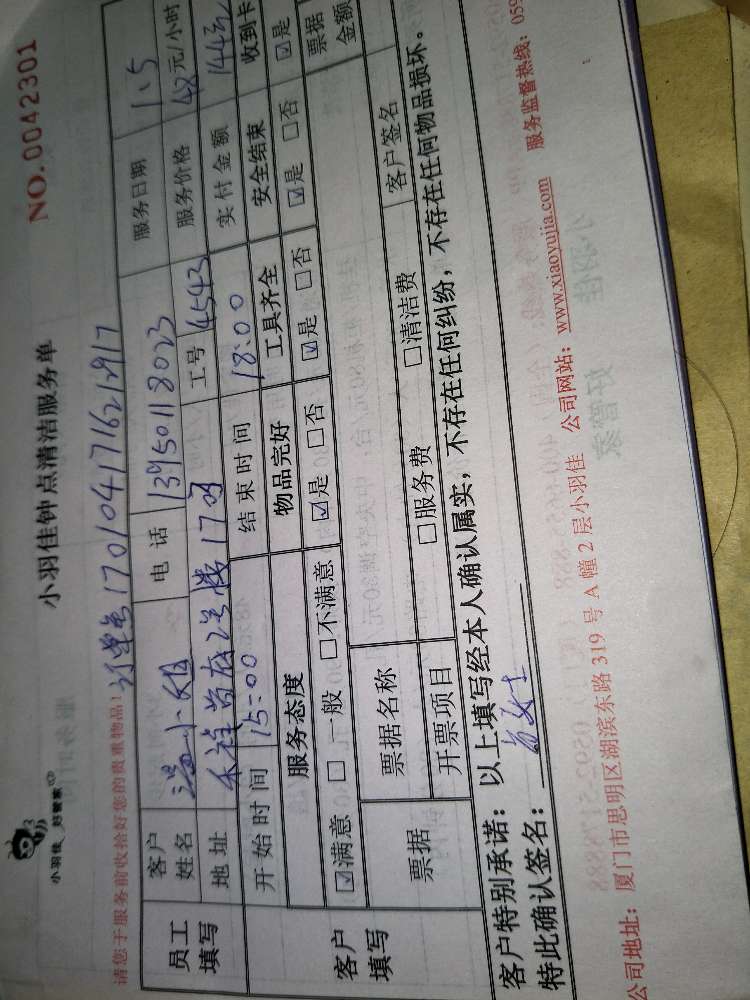 小羽佳 好管家
小羽佳钟点清洁服务单
NO.0042301
请您于服务前收拾好您的贵重物品!
订单号17010417162917
员工填写
客户姓名 温小姐 电话 13950118023 服务日期 1.5
地址 工号 4543 服务价格 48元/小时
开始时间 15:00 结束时间 18:00 实付金额 144元
客户填写
服务态度 物品完好 工具齐全 安全结束 收到卡
☑满意 □一般 □不满意 ☑是 □否 ☑是 □否 ☑是 □否 ☑是
票据 票据名称 票据金额
开票项目 □服务费 □清洁费 客户签名
客户特别承诺：以上填写经本人确认属实，不存在任何纠纷，不存在任何物品损坏。
特此确认签名：
公司地址：厦门市思明区湖滨东路 319 号 A 幢 2 层小羽佳 公司网站：www.xiaoyujia.com 服务监督热线：059